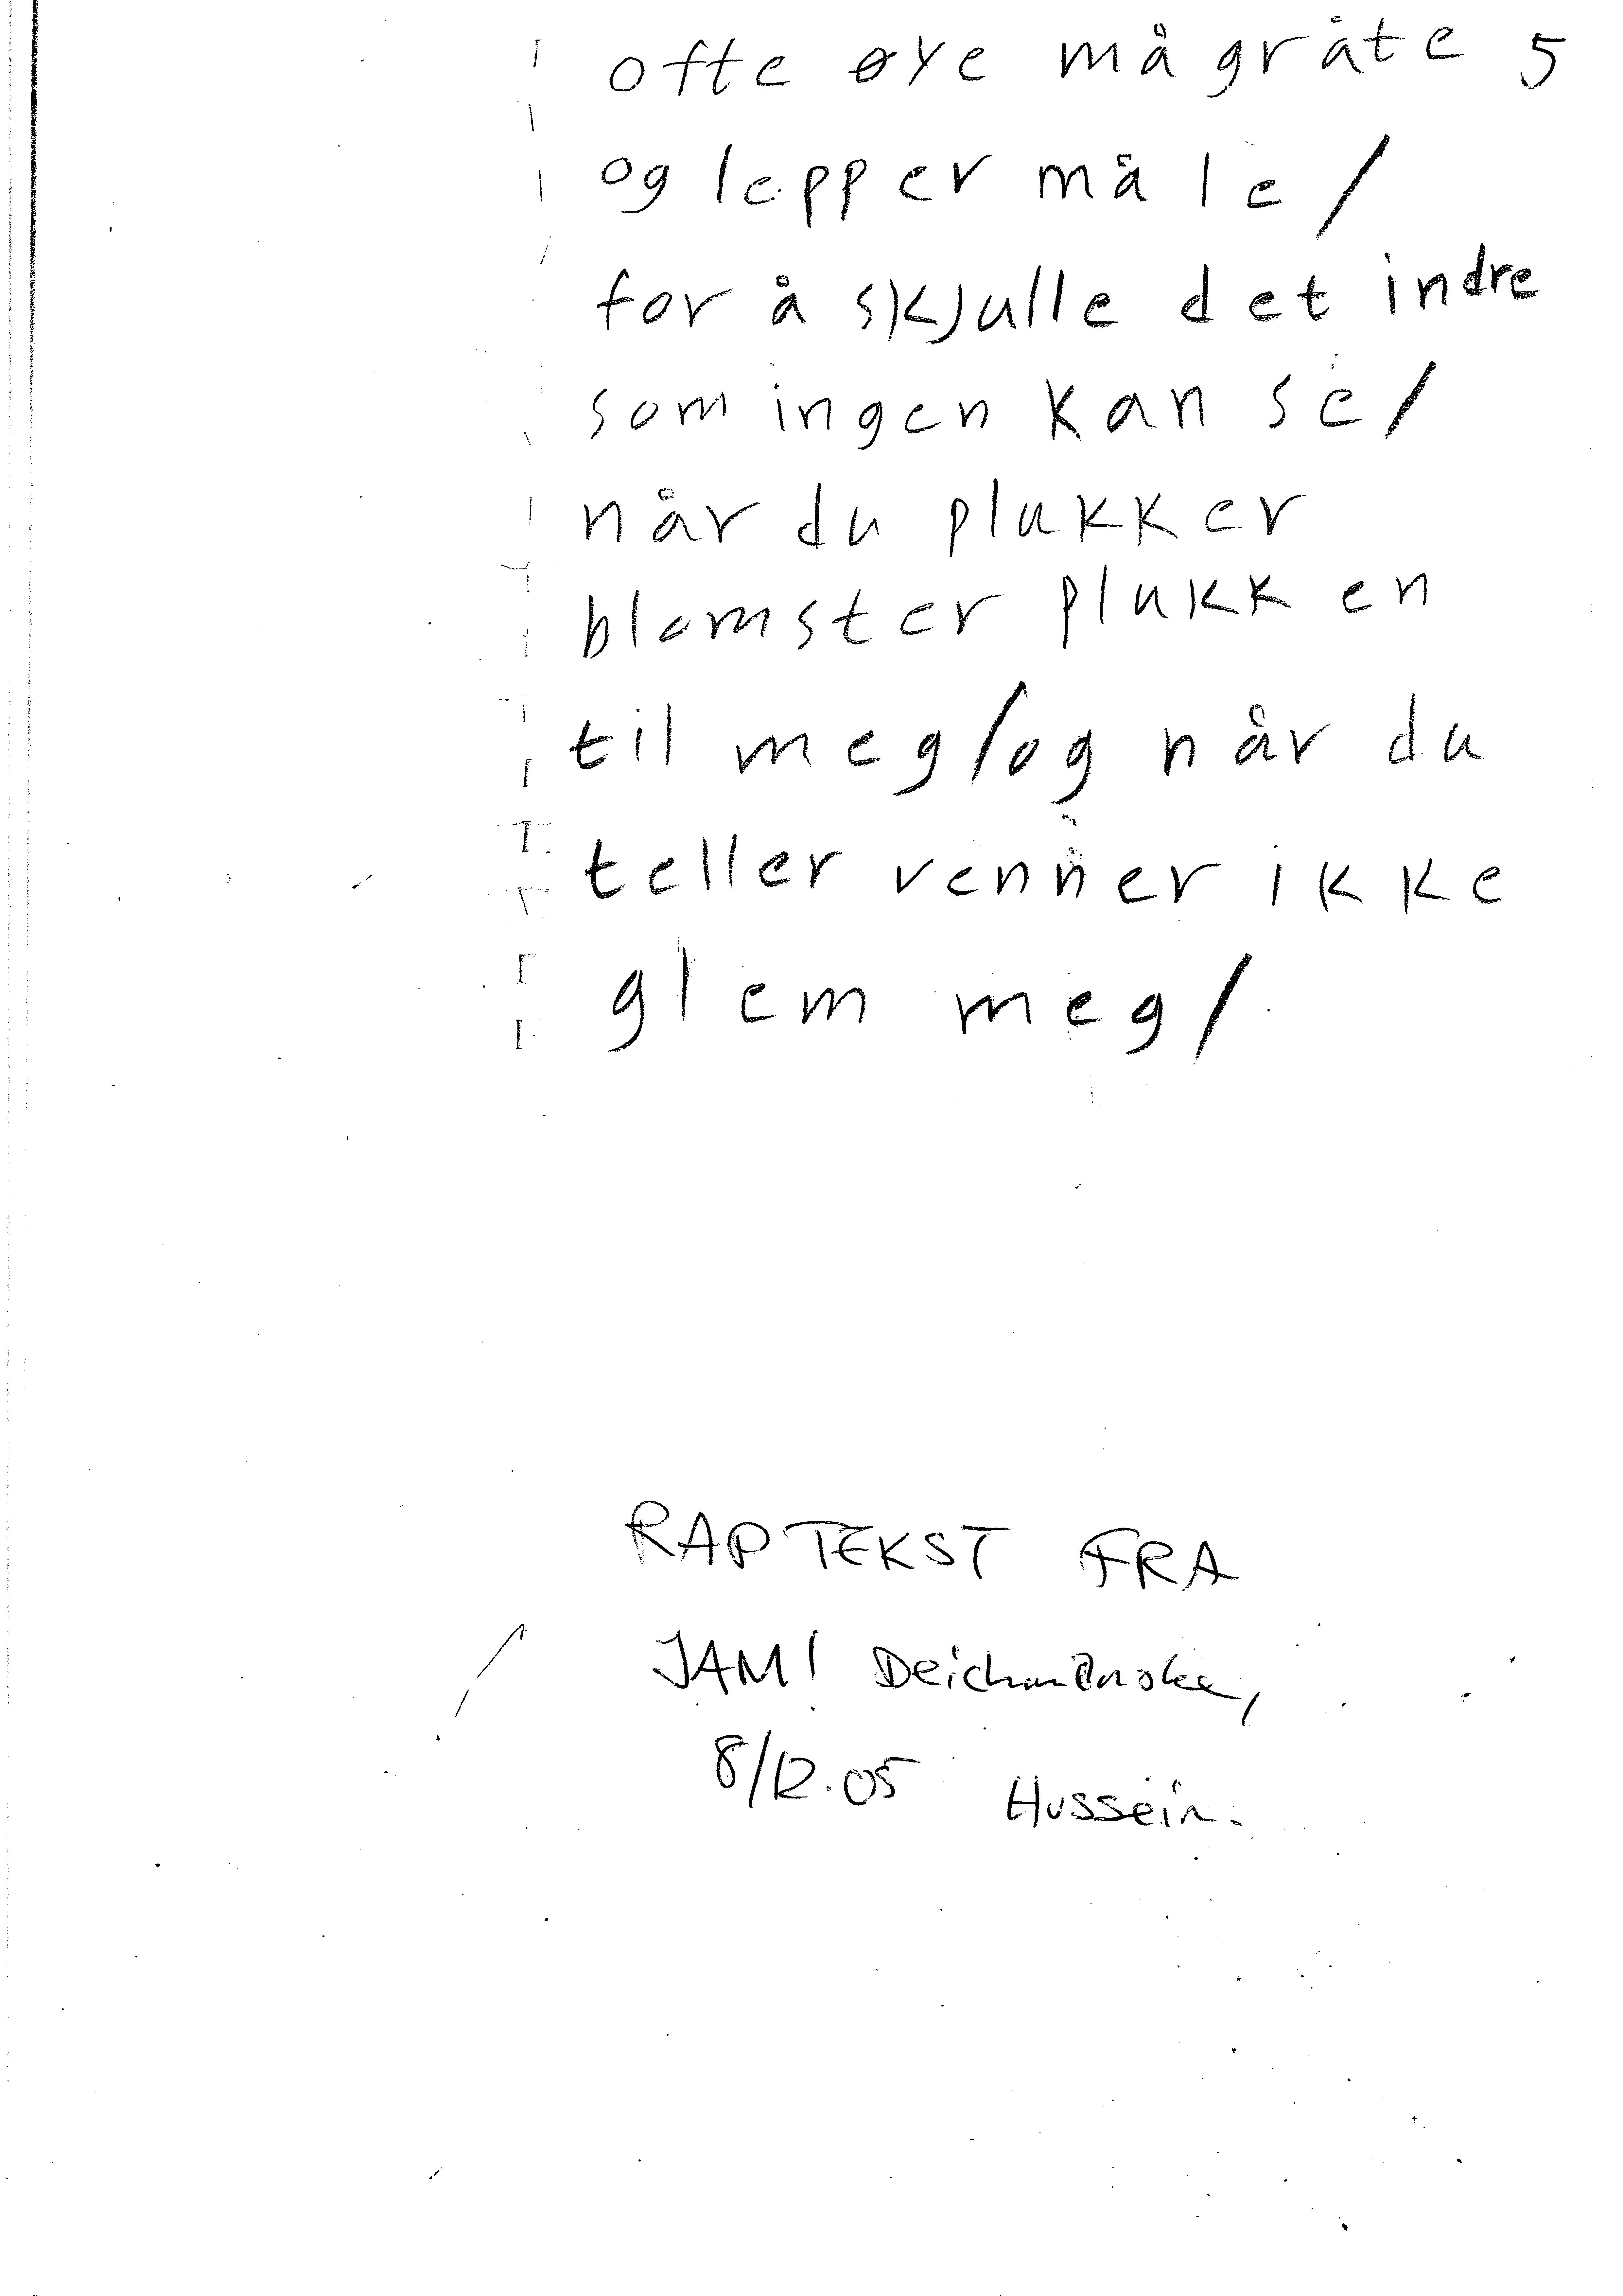 ofte øye må gråte 5
og lepper må le/
for å skjulle det indre
som ingen kan se/
når du plukker
blomster plukk en
til meg/og når du
teller venner ikke
glem meg/
RAP TEKST FRA
JAM! Deichmanske,
8/12.05 Hussein.